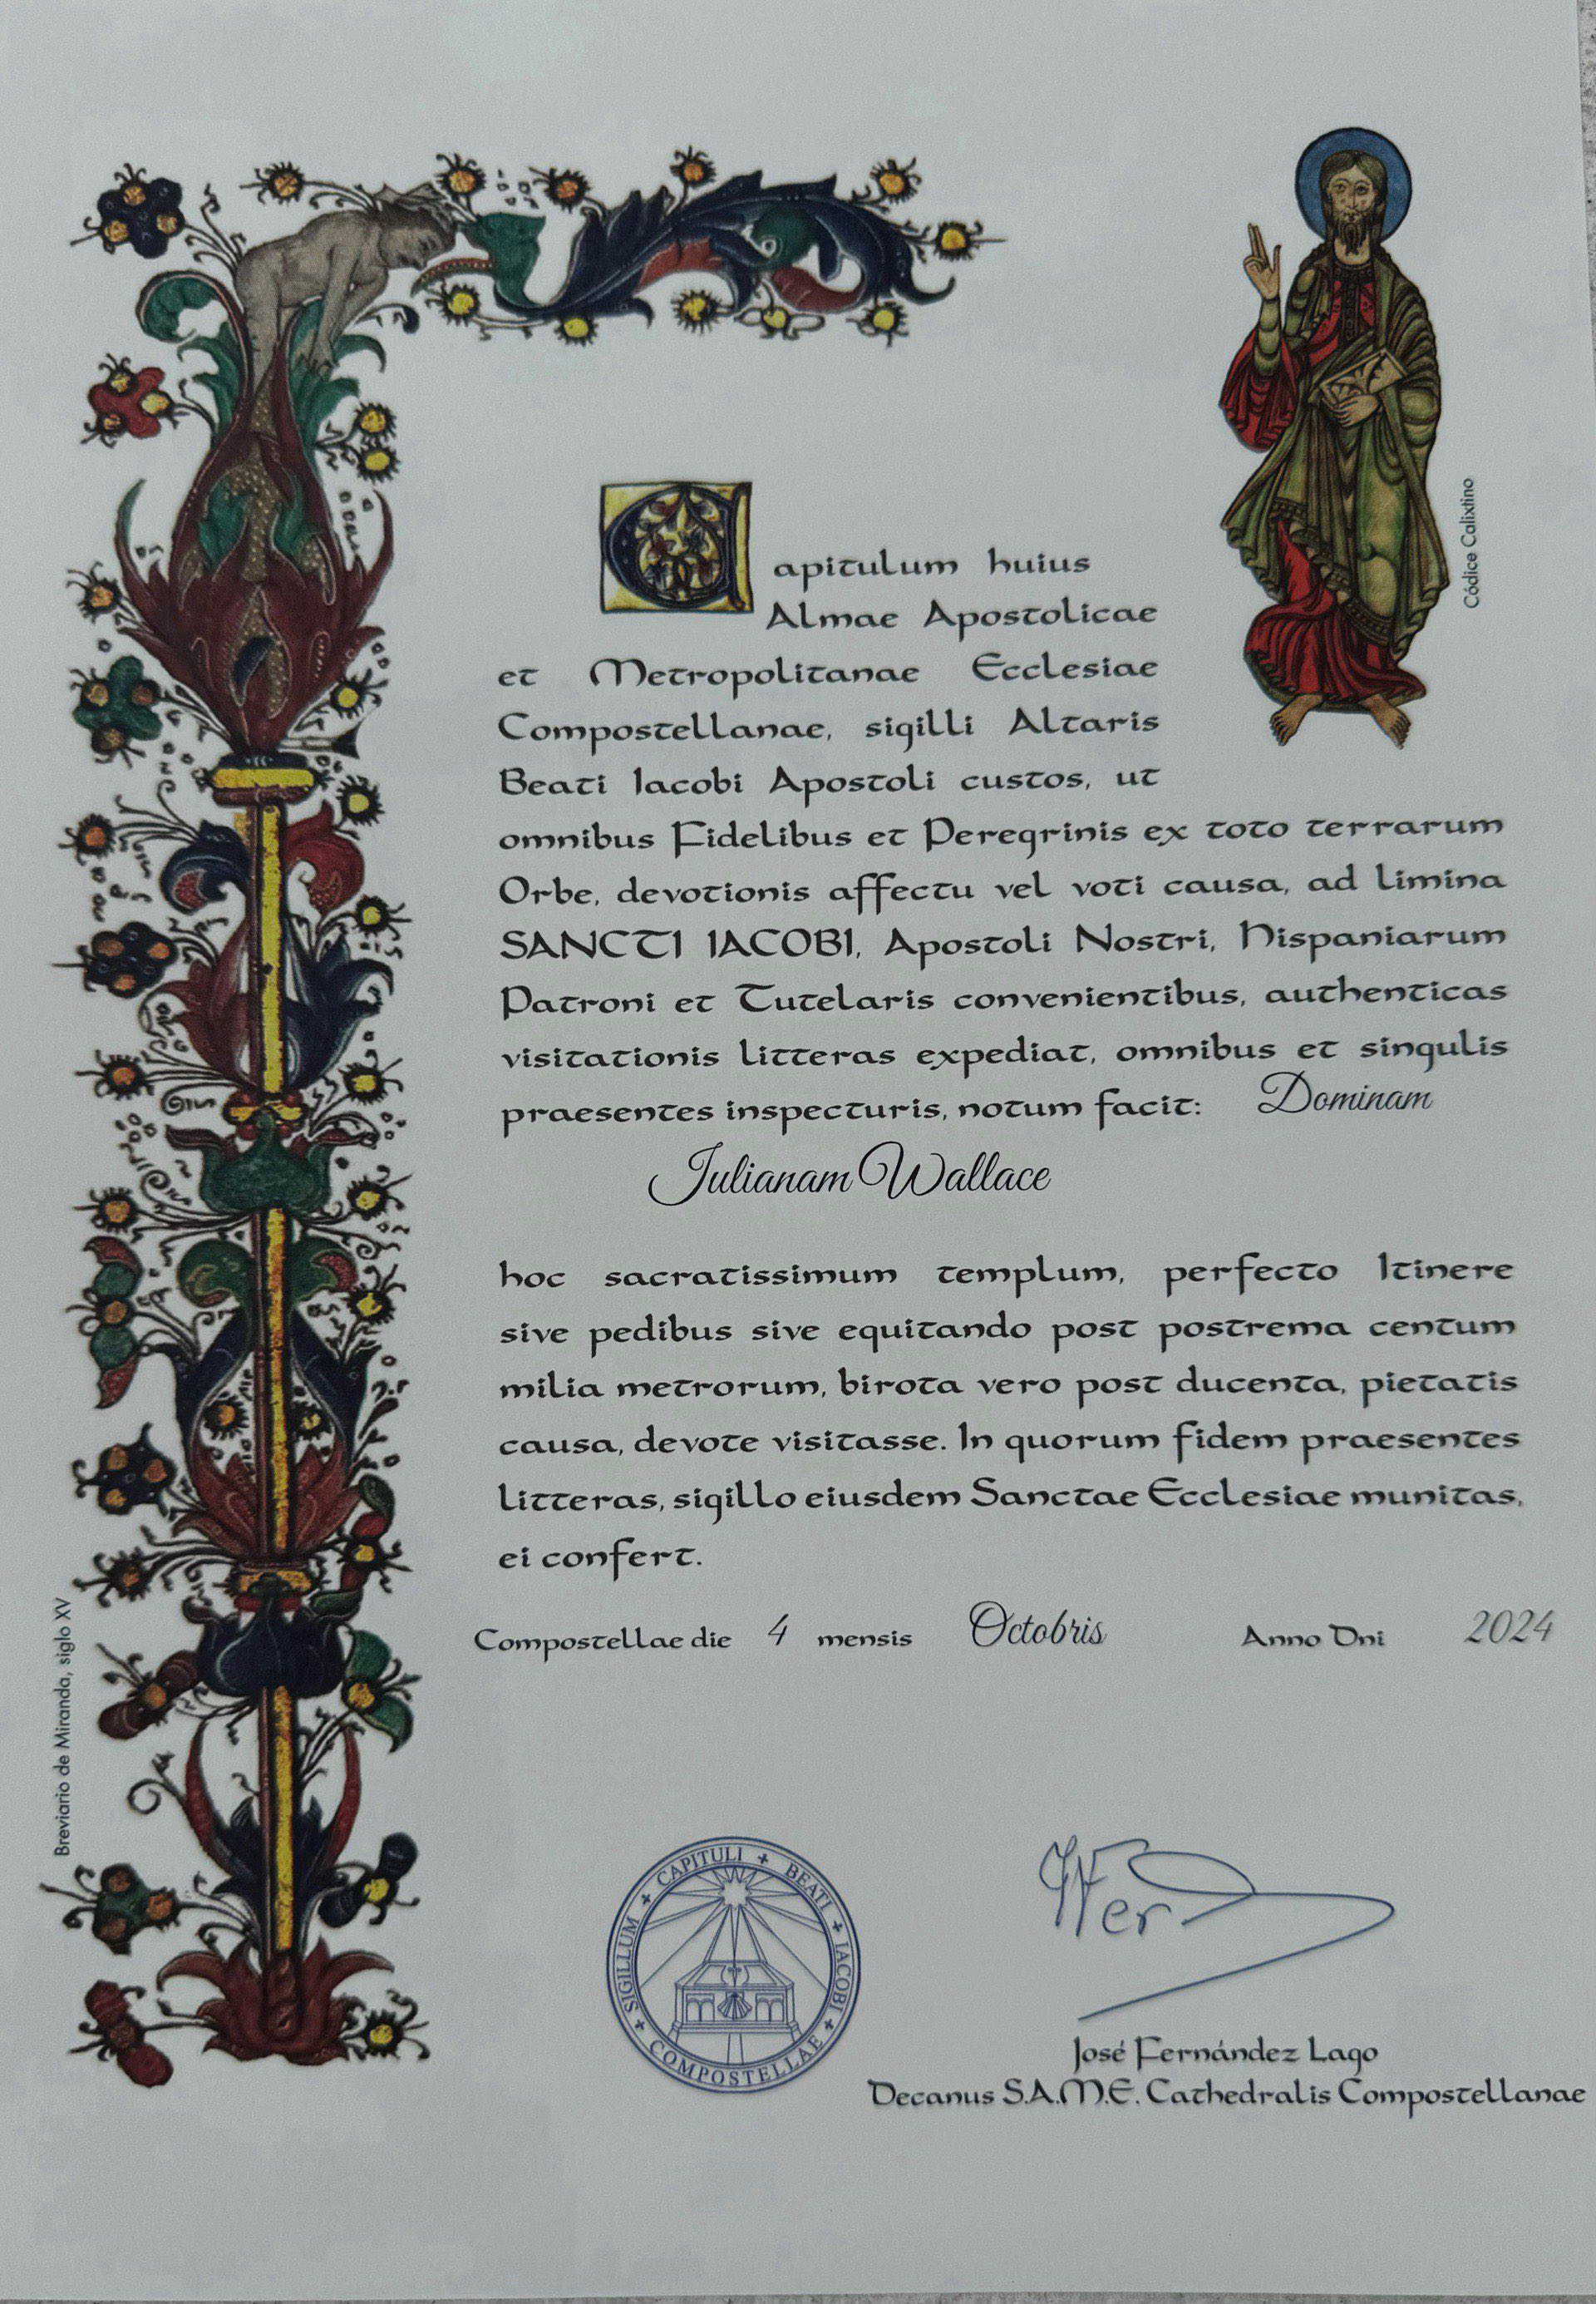 Capitulum huius
Almae Apostolicae
et Metropolitanae Ecclesiae
Compostellanae, sigilli Altaris
Beati Iacobi Apostoli custos, ut
omnibus Fidelibus et Peregrinis ex toto terrarum
Orbe, devotionis affectu vel voti causa, ad limina
SANCTI IACOBI, Apostoli Nostri, Hispaniarum
Patroni et Tutelaris convenientibus, authenticas
visitationis litteras expediat, omnibus et singulis
praesentes inspecturis, notum facit: Dominam
Iulianam Wallace
hoc sacratissimum templum, perfecto Itinere
sive pedibus sive equitando post postrema centum
milia metrorum, birota vero post ducenta, pietatis
causa, devote visitasse. In quorum fidem praesentes
litteras, sigillo eiusdem Sanctae Ecclesiae munitas,
ei confert.
Compostellae die 4 mensis Octobris Anno Dni 2024
SIGILLUM + CAPITULI + BEATI + IACOBI + COMPOSTELLAE +
José Fernández Lago
Decanus S.A.M.E. Cathedralis Compostellanae
Códice Calixtino
Breviario de Miranda, siglo XV